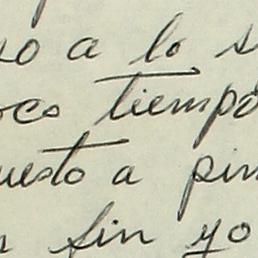 so a lo s
oco tiempo
uesto a pin
n fin yo